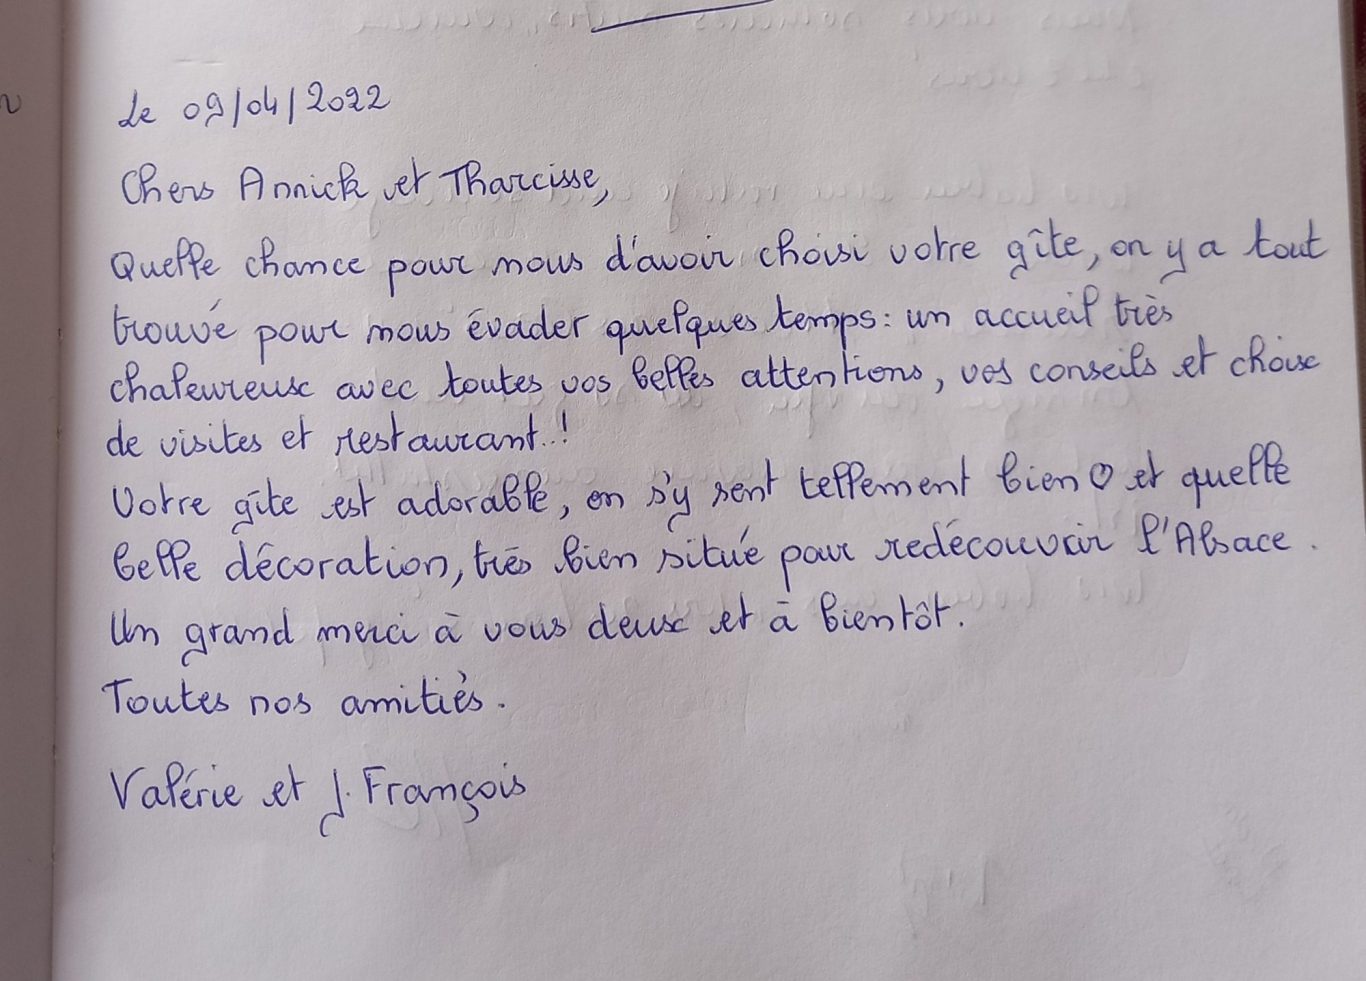 Le 09/04/2022
Chers Annick et Tharcisse,
Quelle chance pour nous d'avoir choisi votre gîte, on y a tout
trouvé pour nous évader quelques temps: un accueil très
chaleureux avec toutes vos belles attentions, vos conseils et choix
de visites et restaurant..!
Votre gîte est adorable, on s'y sent tellement bien ♡ et quelle
belle décoration, très bien situé pour redécouvrir l'Alsace.
Un grand merci à vous deux et à bientôt.
Toutes nos amitiés.
Valérie et J. François